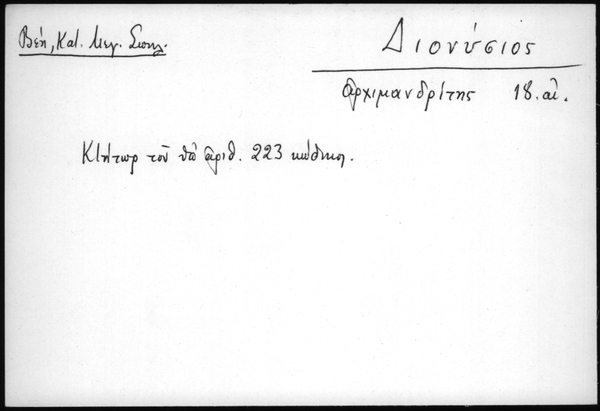 Βέη, Κατ. Μεγ. Σπηλ.
Διονύσιος
ἀρχιμανδρίτης 18. αἰ.
Κτήτωρ τοῦ ὑπ' ἀριθ. 223 κώδικος.